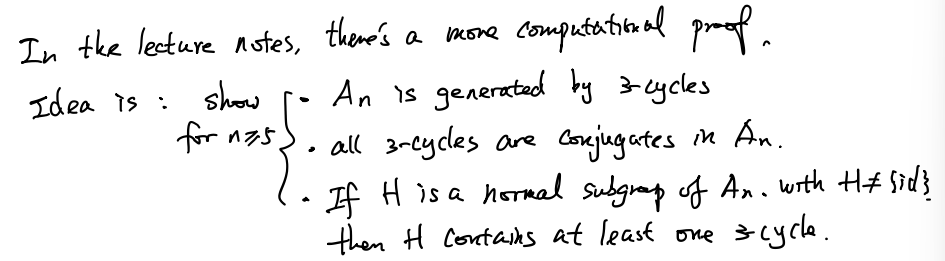 In the lecture notes, there's a more computational proof.
Idea is : show · An is generated by 3-cycles
for n≥5 · all 3-cycles are conjugates in An.
· If H is a normal subgroup of An. with H≠{id}
then H contains at least one 3-cycle.